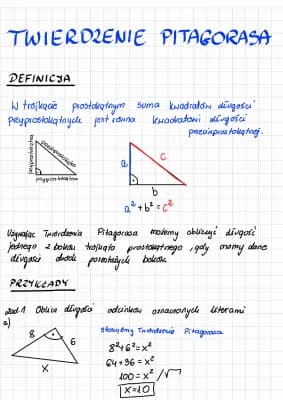 TWIERDZENIE PITAGORASA
DEFINICJA
W trójkącie prostokątnym suma kwadratów długości
przyprostokątnych jest równa kwadratowi długości
przeciwprostokątnej.
przyprostokątna
przeciwprostokątna
przyprostokątna
a
c
b
a² + b² = c²
Używając Twierdzenia Pitagorasa możemy obliczyć długość
jednego z boków trójkąta prostokątnego, gdy mamy dane
długości dwóch pozostałych boków.
PRZYKŁADY
Zad.1 Oblicz długości odcinków oznaczonych literami
a)
8
6
x
stosujemy Twierdzenie Pitagorasa
8²+6²=x²
64+36=x²
100=x² /√
x=10